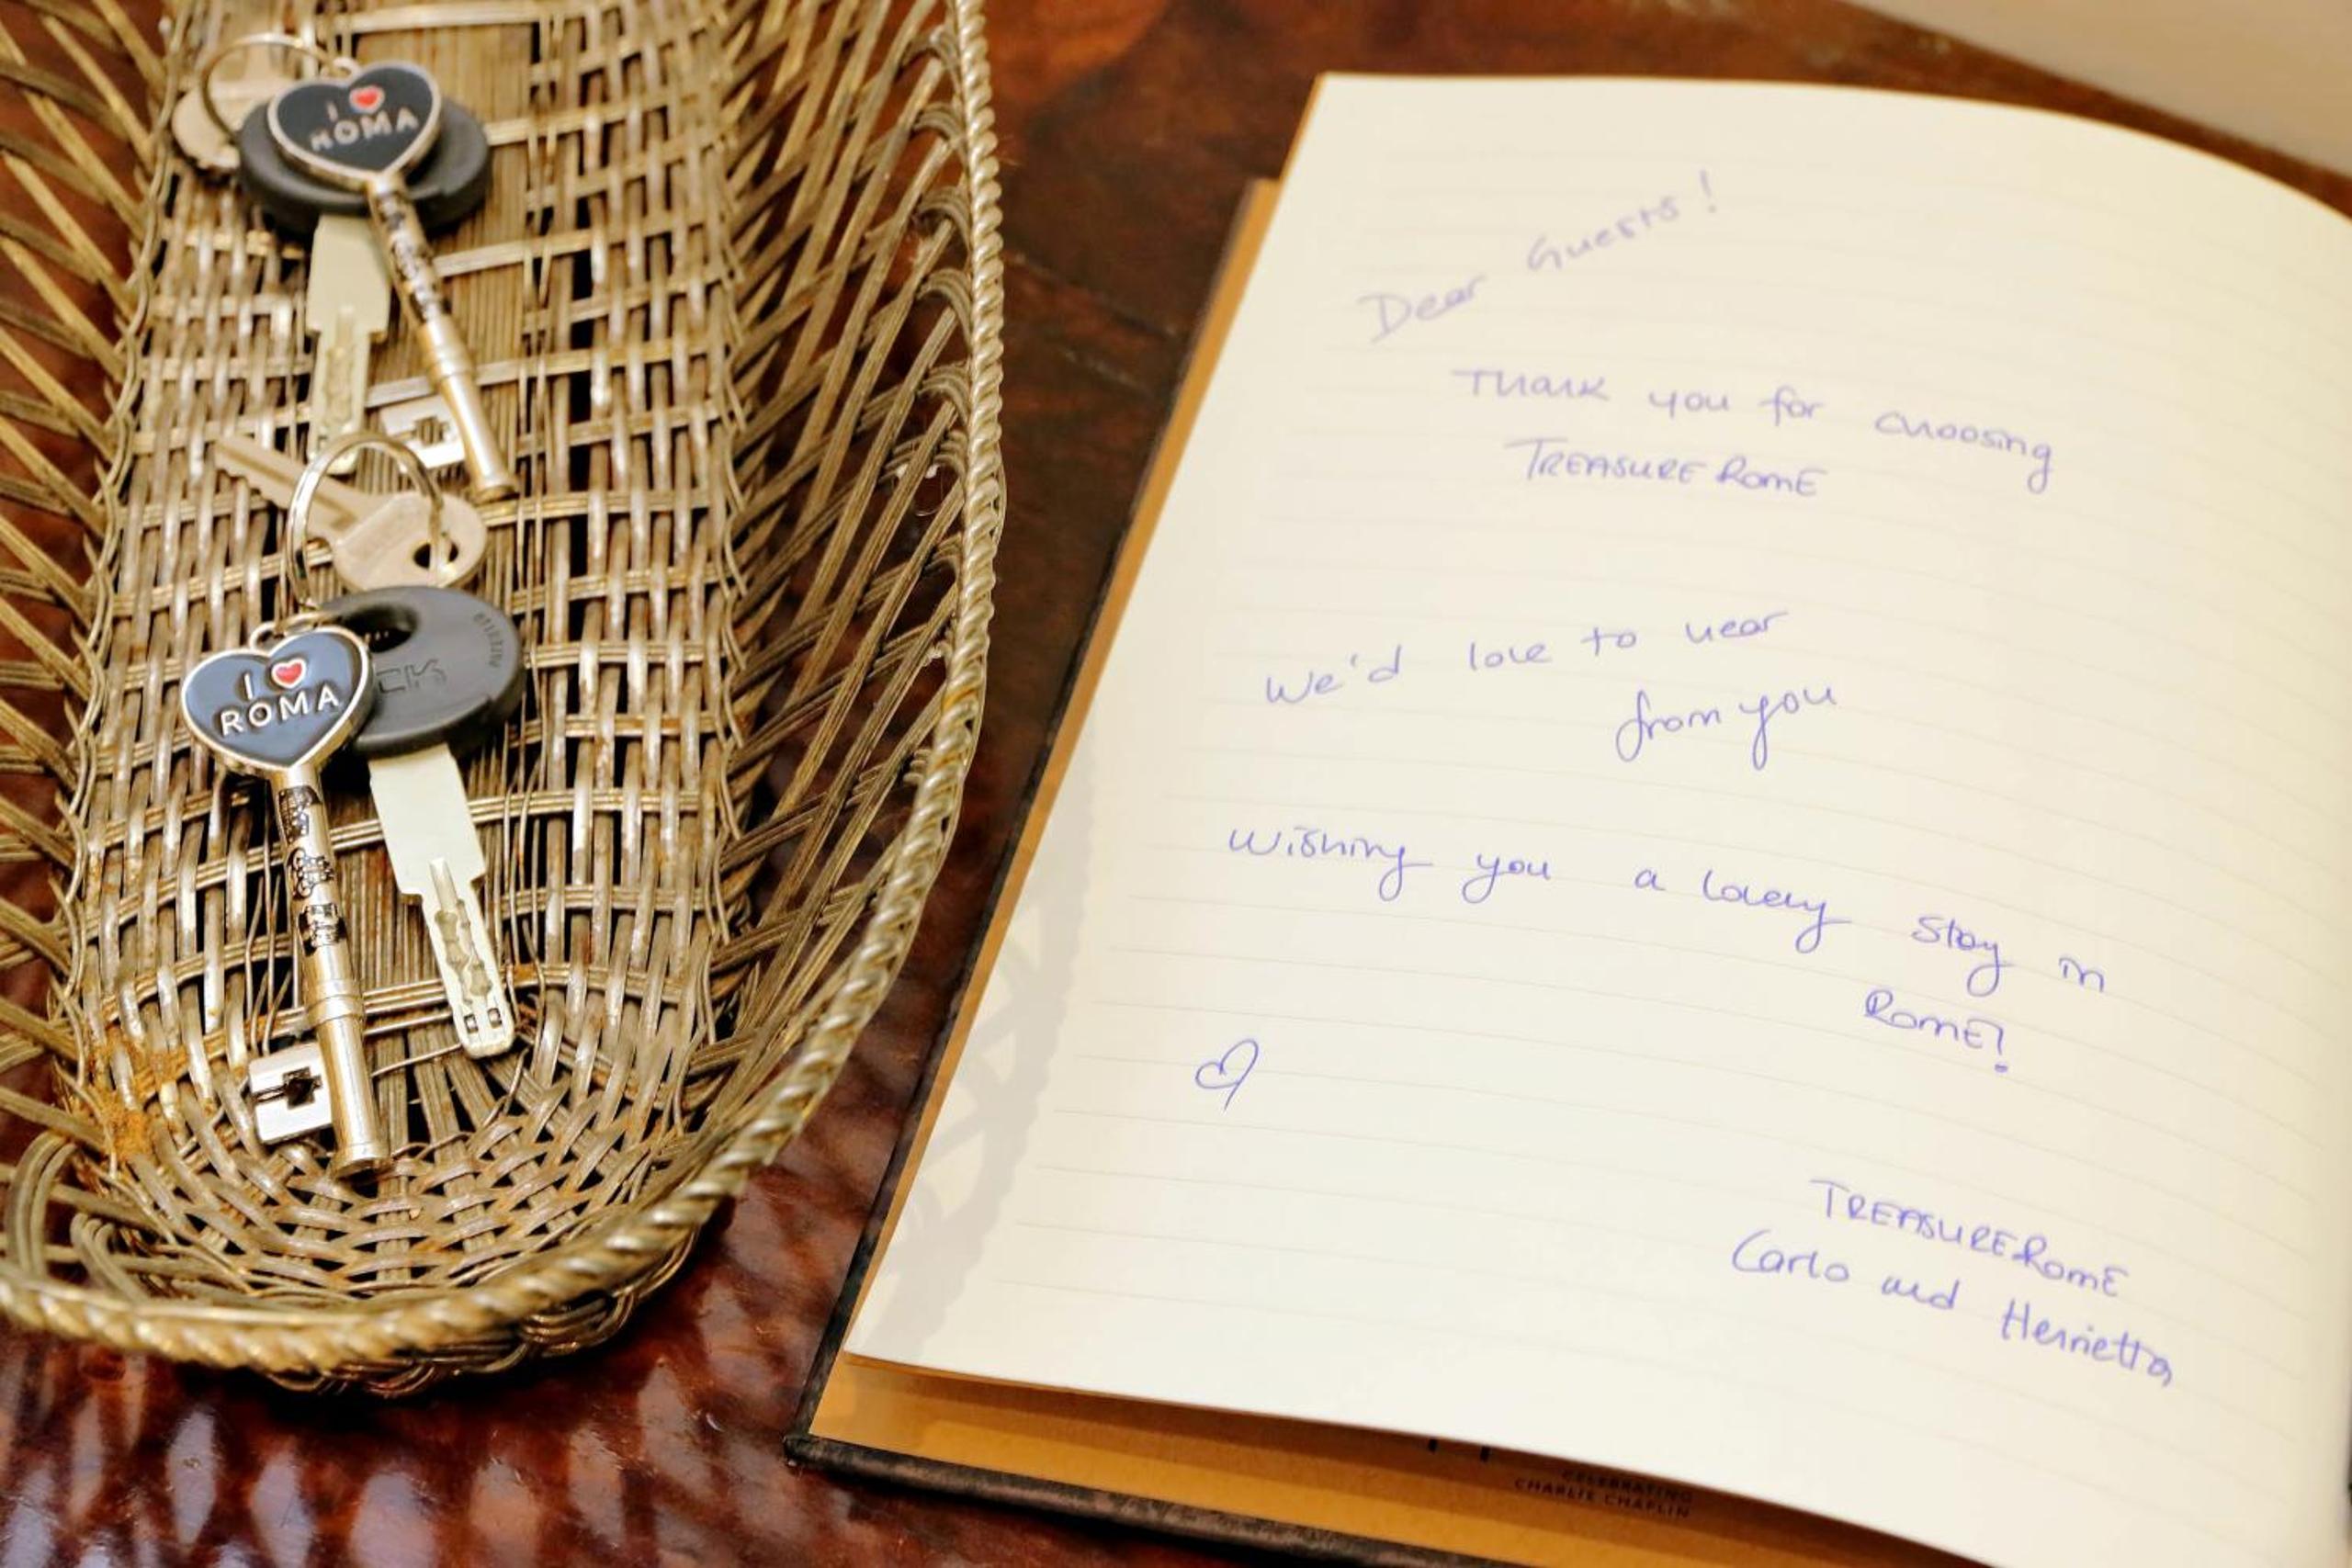 I ROMA
I ROMA
CK
Dear Guests!
Thank you for choosing
TREASURE ROME
We'd love to hear
from you
Wishing you a lovely stay in
ROME!
TREASUREROME
Carlo and Henrietta
CELEBRATING
CHARLIE CHAPLIN